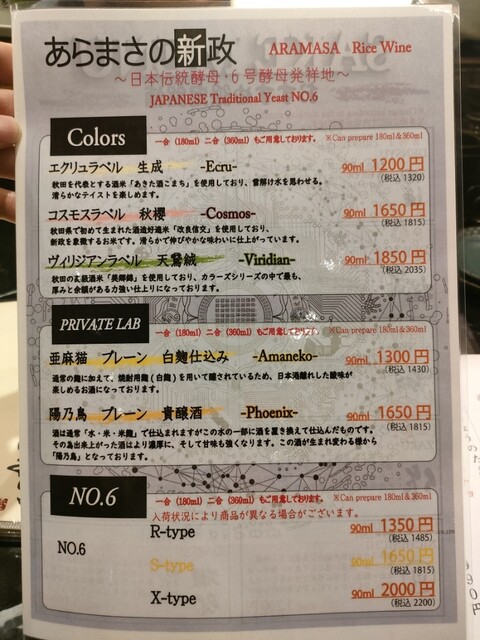 あらまさの新政 ARAMASA Rice Wine
～日本伝統酵母・6号酵母発祥地～
JAPANESE Traditional Yeast NO.6
Colors
一合（180ml）二合（360ml）もご用意しております。 ※Can prepare 180ml&360ml
エクリュラベル 生成 -Ecru- 90ml 1200円
(税込 1320)
秋田を代表とする酒米「あきた酒こまち」を使用しており、雪解け水を思わせる。
清らかなテイストを楽しめます。
コスモスラベル 秋櫻 -Cosmos- 90ml 1650円
(税込 1815)
秋田県で初めて生まれた酒造好適米「改良信交」を使用しており、
新政を象徴するお米です。滑らかで伸びやかな味わいに仕上がっています。
ヴィリジアンラベル 天鵞絨 -Viridian- 90ml 1850円
(税込 2035)
秋田の高級酒米「美郷錦」を使用しており、カラーズシリーズの中で最も、
厚みと余韻がある力強い仕上りになっております。
PRIVATE LAB
一合（180ml）二合（360ml）もご用意しております。 ※Can prepare 180ml&360ml
亜麻猫 プレーン 白麹仕込み -Amaneko- 90ml 1300円
(税込 1430)
通常の麹に加えて、焼酎用麹（白麹）を用いて醸されているため、日本酒離れした酸味が
楽しめるお酒になっております。
陽乃鳥 プレーン 貴醸酒 -Phoenix- 90ml 1650円
(税込 1815)
酒は通常「水・米・米麹」で仕込まれますがこの水の一部に酒を置き換えて仕込んだものです。
その為出来上がった酒はより濃厚に、そして甘味も強くなります。この酒が生まれ変わる様から
「陽乃鳥」となっております。
NO.6
一合（180ml）二合（360ml）もご用意しております。 ※Can prepare 180ml&360ml
入荷状況により商品が異なる場合がございます。
NO.6
R-type 90ml 1350円
(税込 1485)
S-type 90ml 1650円
(税込 1815)
X-type 90ml 2000円
(税込 2200)